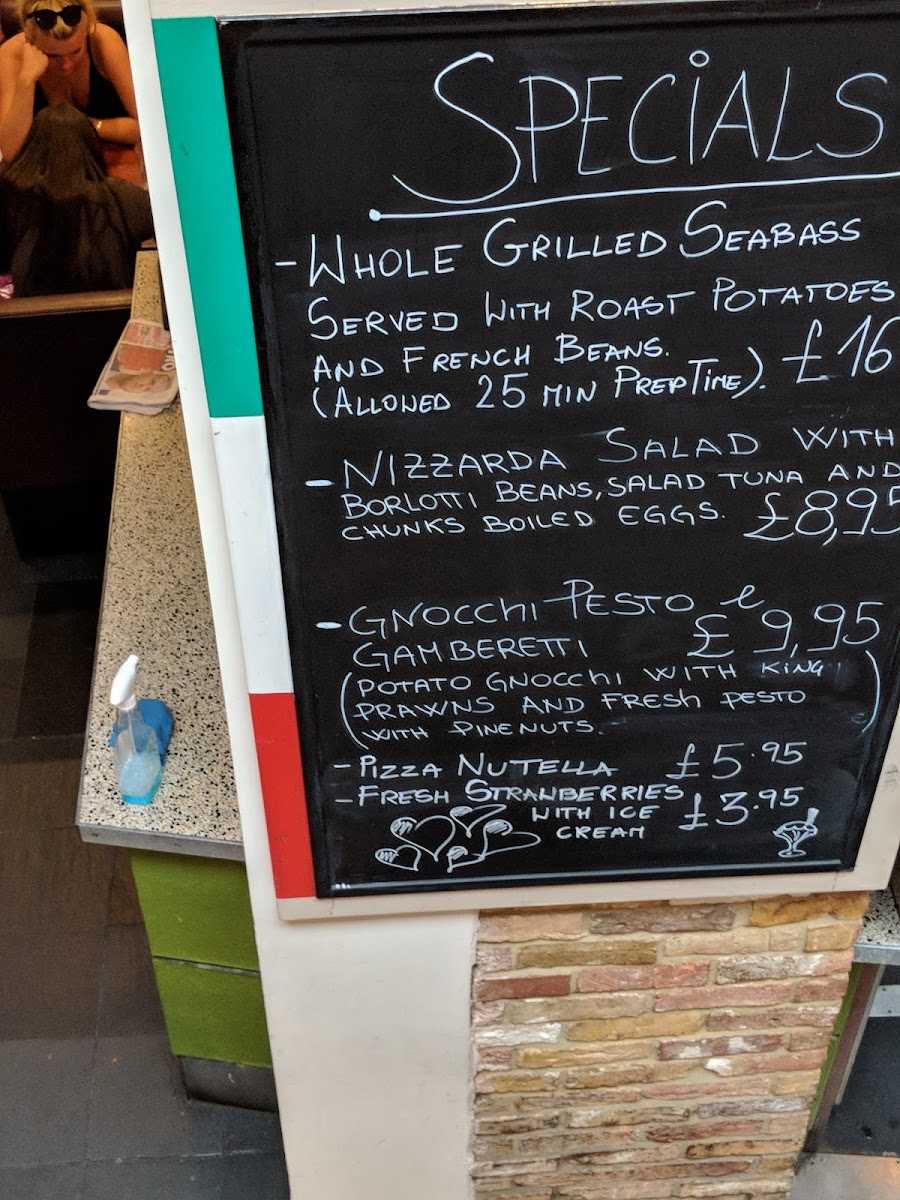 SPECIALS
- WHOLE GRILLED SEABASS
SERVED WITH ROAST POTATOES
AND FRENCH BEANS. £16
(ALLOWED 25 MIN PREPTIME).
- NIZZARDA SALAD WITH
BORLOTTI BEANS, SALAD TUNA AND
CHUNKS BOILED EGGS. £8,95
- GNOCCHI PESTO e
GAMBERETTI £9,95
(POTATO GNOCCHI WITH KING
PRAWNS AND FRESH PESTO
WITH PINENUTS.)
- PIZZA NUTELLA £5.95
- FRESH STRANBERRIES
WITH ICE £3.95
CREAM